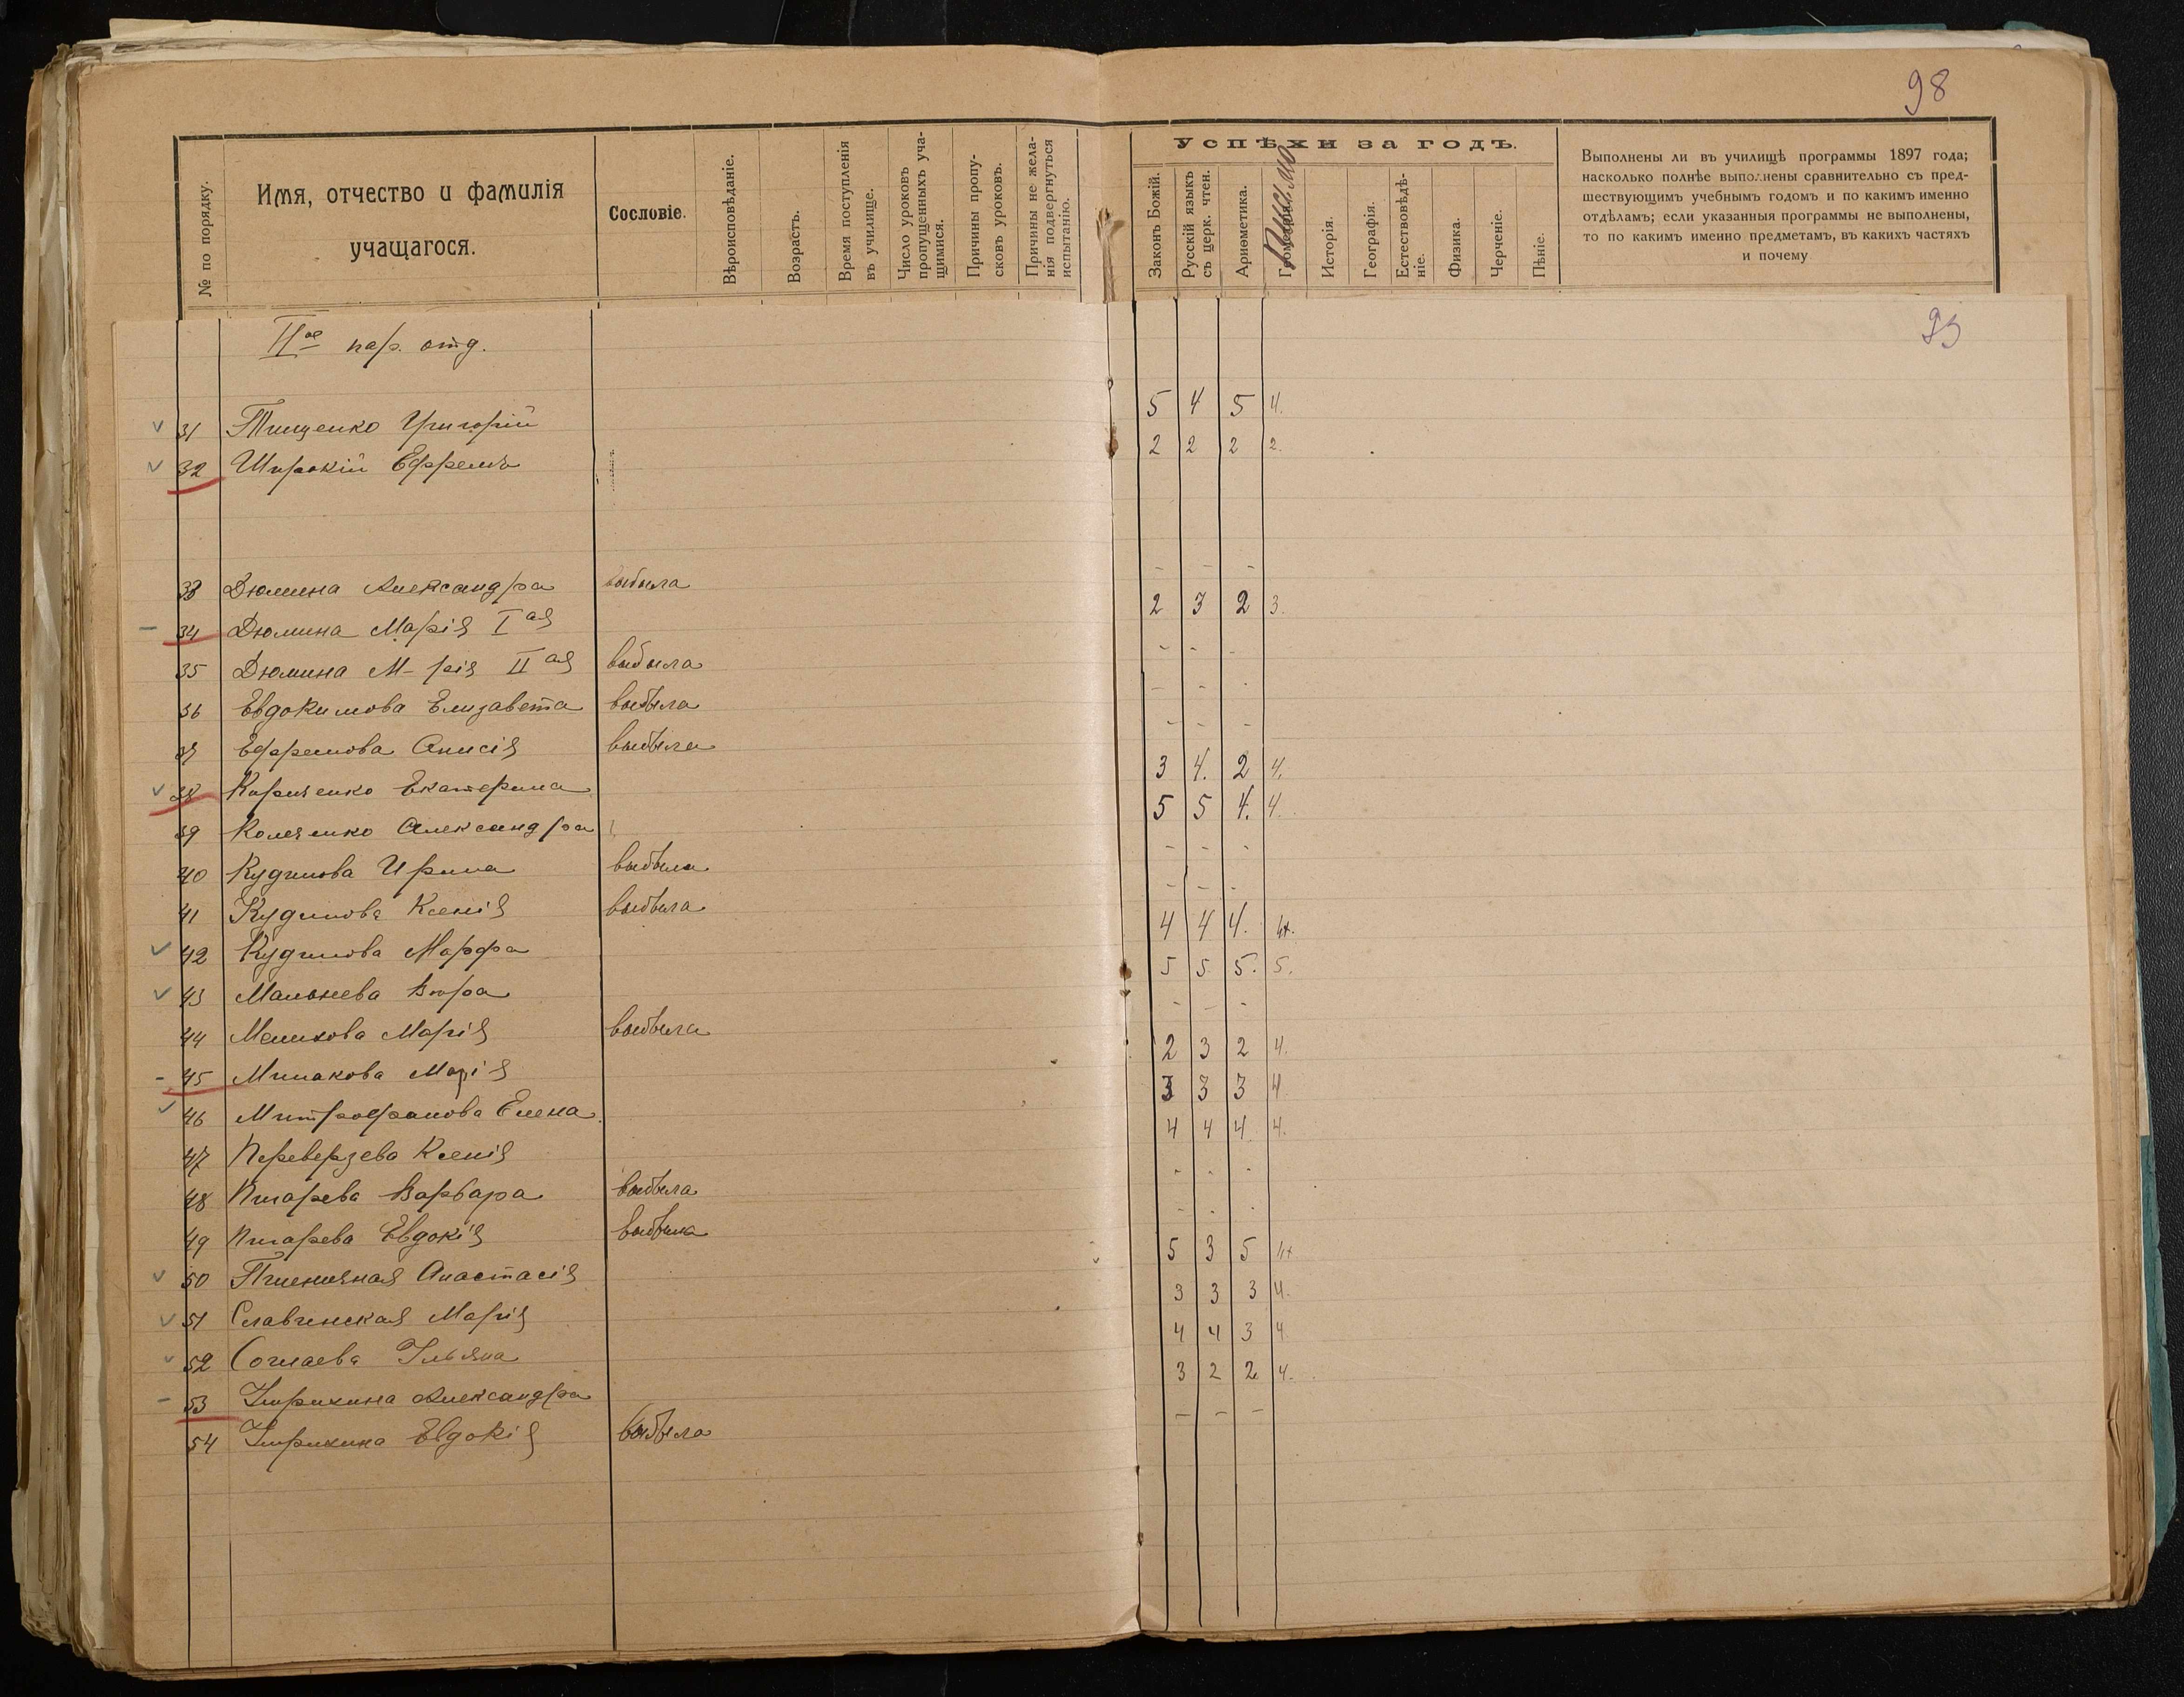 98
№ по порядку.
Имя, отчество и фамилія учащагося.
Сословіе.
Вѣроисповѣданіе.
Возрастъ.
Время поступленія въ училище.
Число уроковъ пропущенныхъ учащимися.
Причины пропусковъ уроковъ.
Причины не желанія подвергнуться испытанію.
Успѣхи за годъ.
Законъ Божій.
Русскій языкъ съ церк. чтен.
Ариѳметика.
Геометрія.
Письмо
Исторія.
Географія.
Естествовѣдѣніе.
Физика.
Черченіе.
Пѣніе.
Выполнены ли въ училищѣ программы 1897 года;
насколько полнѣе выполнены сравнительно съ пред-
шествующимъ учебнымъ годомъ и по какимъ именно
отдѣламъ; если указанныя программы не выполнены,
то по какимъ именно предметамъ, въ какихъ частяхъ
и почему
IIое пар. отд.
31 Тищенко Григорій 5 4 5 4.
32 Широкій Ефремъ 2 2 2 2.
33 Дюмина Александра выбыла - - -
34 Дюмина Марія Iая 2 3 2 3.
35 Дюмина М-рія IIая выбыла - - -
36 Евдокимова Елизавета выбыла - - -
37 Ефремова Анисія выбыла - - -
38 Кириченко Екатерина 3 4. 2 4.
39 Александра 5 5 4. 4.
40 Кудинова Ирина выбыла - - -
41 Кудинова Ксенія выбыла - - -
42 Кудинова Марфа 4 4 4. 4+.
43 Вѣра 5 5 5. 5.
44 Мешкова Марія выбыла - - -
45 Минакова Марія 2 3 2 4.
46 Митрофанова Елена 3 3 3 4
47 Переверзева Ксенія 4 4 4 4.
48 Писарева Варвара выбыла - - -
49 Писарева Евдокія выбыла - - -
50 Пшеничная Анастасія 5 3 5 4+
51 Славгинская Марія 3 3 3 4.
52 Ульяна 4 4 3 4.
53 Александра 3 2 2 4.
54 Евдокія выбыла - - -